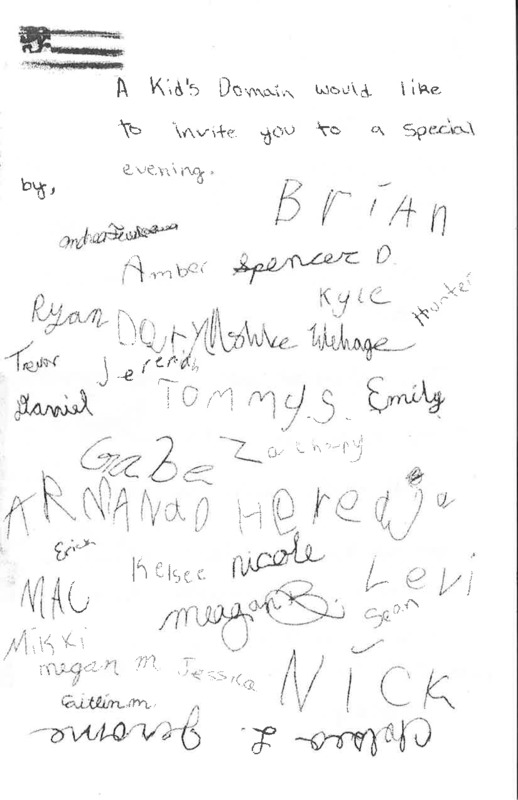 A Kid's Domain would like
to invite you to a special
evening.
by,
BrIAn
Andrea
Amber Spencer D.
Kyle Hunter
Ryan Dary Wehage
Trevor Jeremiah
Daniel Tommy S. Emily
GaBe Zachary
ARMANdO HeredJa
Erick Kelsee nicole
MAC meagan B. Levi
Sean
Mikki
megan m Jessica NICK
Caitlin m.
Chelsea L. Jerome